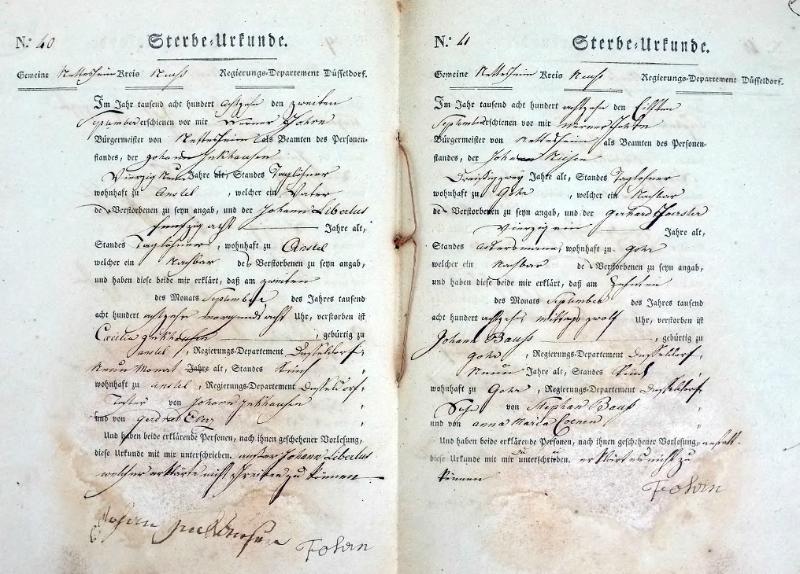 N.º 40 Sterbe-Urkunde.
Gemeine Nettesheim Kreis Neuss Regierungs-Departement Düsseldorf.
Im Jahr tausend acht hundert achtzehn den zweiten
September erschienen vor mir Werner Fohrn
Bürgermeister von Nettesheim als Beamten des Personen-
standes, der Johann Inkhausen
Vierzig Jahre alt, Standes Taglöhner
wohnhaft zu Anstel, welcher ein Vater
des Verstorbenen zu seyn angab, und der Johann Libertus
fünfzig acht Jahre alt,
Standes Taglöhner, wohnhaft zu Anstel
welcher ein Nachbar des Verstorbenen zu seyn angab,
und haben diese beide mir erklärt, daß am zweiten
des Monats September, des Jahres tausend
acht hundert achtzehn morgens acht Uhr, verstorben ist
Cæcilia Inkhausen, gebürtig zu
Anstel, Regierungs-Departement Düsseldorf,
Neun Monat Jahre alt, Standes
wohnhaft zu Anstel, Regierungs-Departement Düsseldorf,
Tochter von Johann Inkhausen
und von Gerdrud
Und haben beide erklärende Personen, nach ihnen geschehener Vorlesung,
diese Urkunde mit mir unterschrieben. außer Johann Libertus
welcher erklärte nicht schreiben zu können
Fohrn
N.º 41 Sterbe-Urkunde.
Gemeine Nettesheim Kreis Neuss Regierungs-Departement Düsseldorf.
Im Jahr tausend acht hundert achtzehn den Eilften
September erschienen vor mir Werner Fohrn
Bürgermeister von Nettesheim als Beamten des Personen-
standes, der Johann
Jahre alt, Standes Taglöhner
wohnhaft zu Gohr, welcher ein Nachbar
des Verstorbenen zu seyn angab, und der Gerhard Foerster
Vierzig ein Jahre alt,
Standes Ackersmann, wohnhaft zu Gohr
welcher ein Nachbar des Verstorbenen zu seyn angab,
und haben diese beide mir erklärt, daß am Zehnten
des Monats September des Jahres tausend
acht hundert achtzehn mittags zwölf Uhr, verstorben ist
Johann Bauß, gebürtig zu
Gohr, Regierungs-Departement Düsseldorf,
Neun Jahre alt, Standes
wohnhaft zu Gohr, Regierungs-Departement Düsseldorf,
Sohn von Stephan Bauß
und von Anna Maria Coenen
Und haben beide erklärende Personen, nach ihnen geschehener Vorlesung,
diese Urkunde mit mir unterschrieben. nicht zu
können
Fohrn